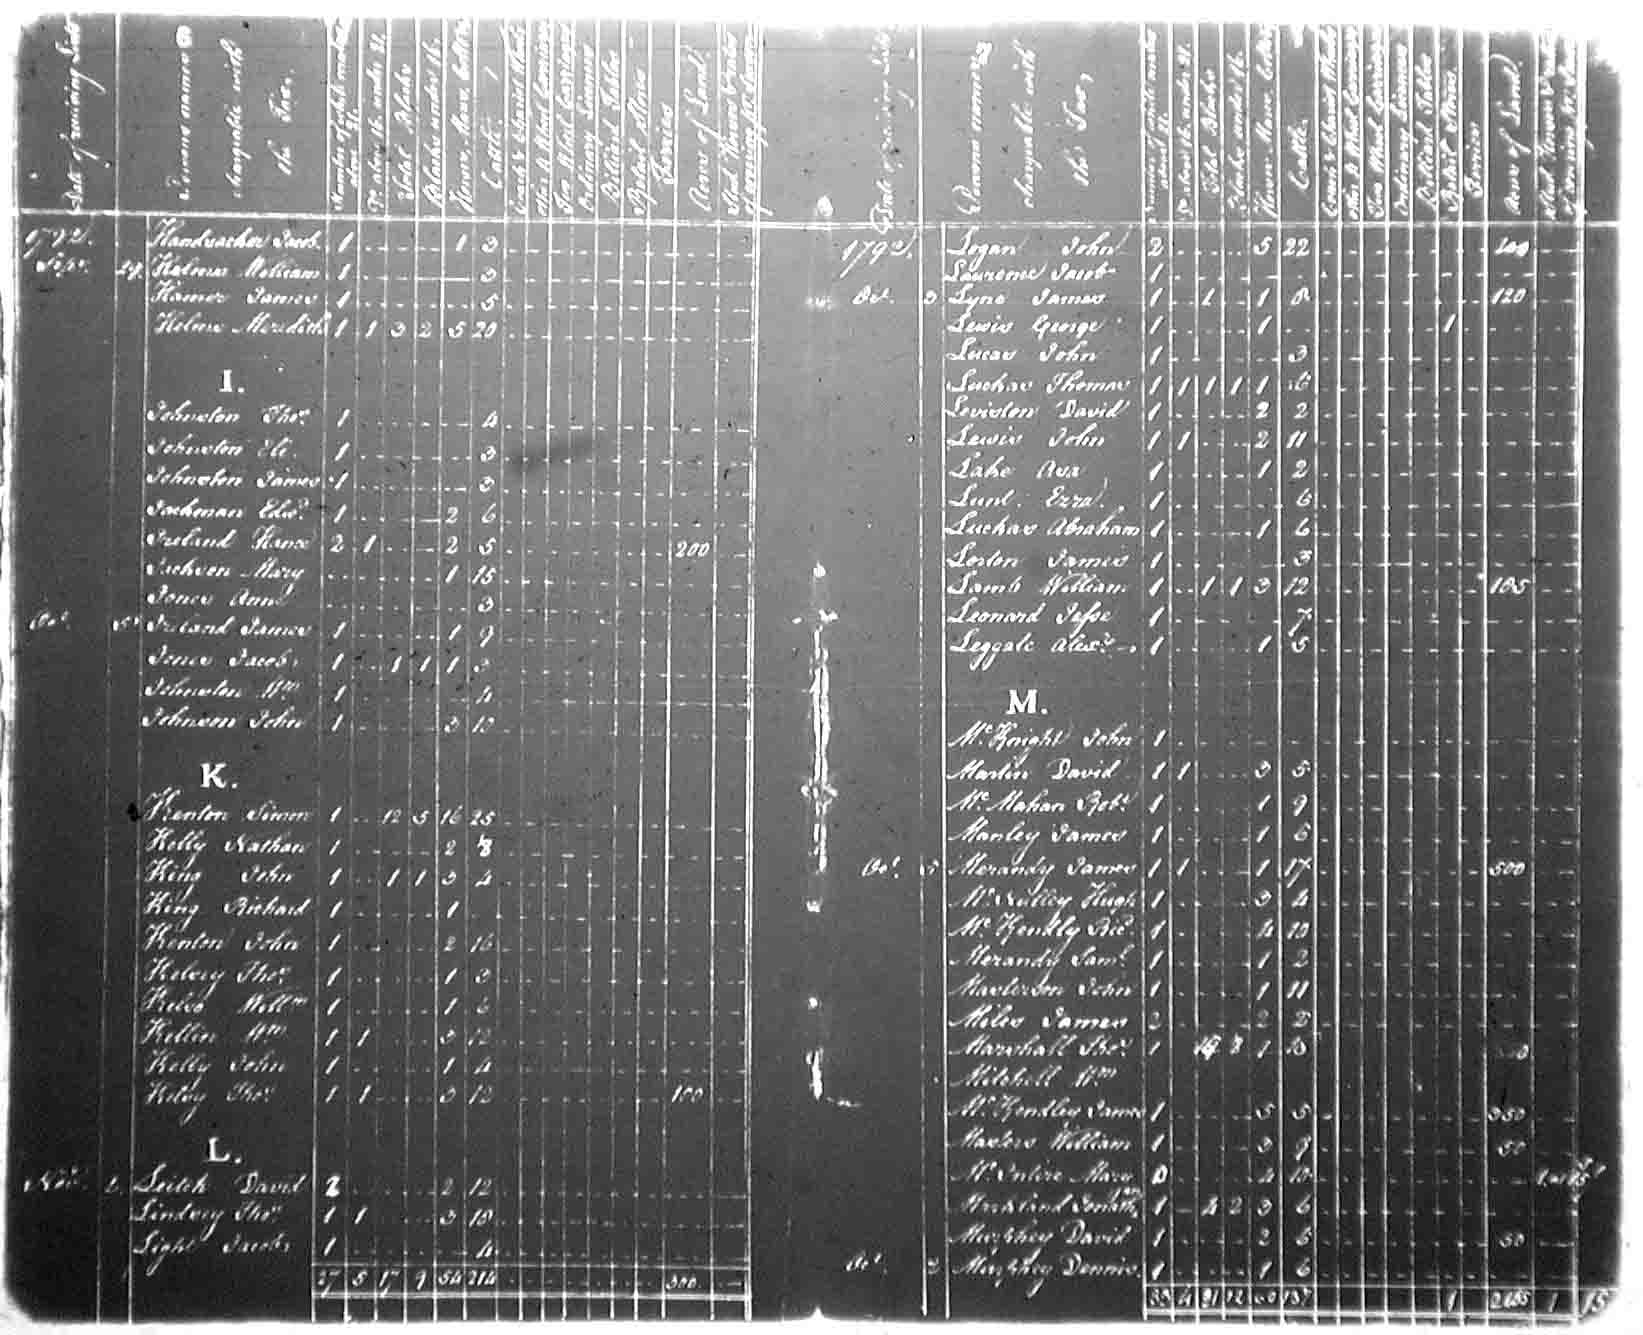 Date of receiving Lists
Persons names
chargeable with
the Tax.
Number of white males above 21.
Do. above 16 under 21.
Total Blacks
Blacks under 16.
Horses, Mares, Colts &c
Cattle.
Coach & Chariot Wheels
other 4 Wheel Carriages
Two Wheel Carriages
Ordinary Licenses
Billiard Tables
Retail Stores
Ferries
Acres of Land
Stud Horses
1792. Handsacker Jacob 1 1 3
Sepr. 29. Helmes William 1 3
Hamer James 1 5
Helms Meredith 1 1 3 2 5 20
I.
Johnston Thos. 1 4
Johnston Eli. 1 3
Johnston James 1 3
Jackman 1 2 6
Ireland Hance 2 1 2 5 200
Jackson Mary 1 15
Jones Ann 3
Oct. 5 Ireland James 1 1 9
Jones Jacob 1 1 1 1 3
Johnston Wm 1 4
Johnson John 1 3 13
K.
Kenton Simon 1 12 5 16 25
Kelly Nathan 1 2 8
King John 1 1 1 3 4
King Richard 1 1
Kenton John 1 2 16
Kelsey Thos. 1 1 3
Kelso Willm 1 1 6
Kellin Wm 1 1 3 12
Kelly John 1 1 4
Kelsy Thos. 1 1 3 12 100
L.
Novr. 2. Leitch David 2 2 12
Lindsey Thos. 1 1 3 13
Light Jacob 1 4
27 5 17 9 54 214 300
Date of receiving Lists
Persons names
chargeable with
the Tax,
Number of white males above 21.
Do. above 16 under 21.
Total Blacks
Blacks under 16.
Horses Mares Colts &c
Cattle.
Coach & Chariot Wheels
other 4 Wheel Carriages
Two Wheel Carriages
Ordinary Licenses
Billiard Tables
Retail Stores.
Ferries
Acres of Land.
Stud Horses
1792. Logan John 2 5 22
Lawrence Jacob 1
Oct. 3 Lyne James 1 1 1 8 120
Lewis George 1 1 1
Lucas John 1 3
Luckas Thomas 1 1 1 1 1 6
Leviston David 1 2 2
Lewis John 1 1 2 11
Lake Asa 1 1 2
Lunt Ezra 1 6
Luckas Abraham 1 1 6
Loston James 1 3
Lamb William 1 1 1 3 12 185
Leonard Jesse 1 7
Leggate Alexr. 1 1 5
M.
McKnight John 1
Martin David 1 1 3 5
McMahan Robt. 1 1 9
Manley James 1 1 6
Oct. 5 Merandy James 1 1 1 17 500
McNulley Hugh 1 3 4
McKendly 1 4 10
Merandy Saml. 1 1 2
Masterson John 1 1 11
Miles James 2 2 5
Marshall Thos. 1 8 1
Mitchell Wm
McKendley James 1 5 5 350
Masters William 1 3 9 50
McIntire Mary 0 4 10
Markland Jonathn 1 4 2 3 6
Murphey David 1 2 5 50
Oct. 2 Murphey Dennis 1 1 6
1 1 15